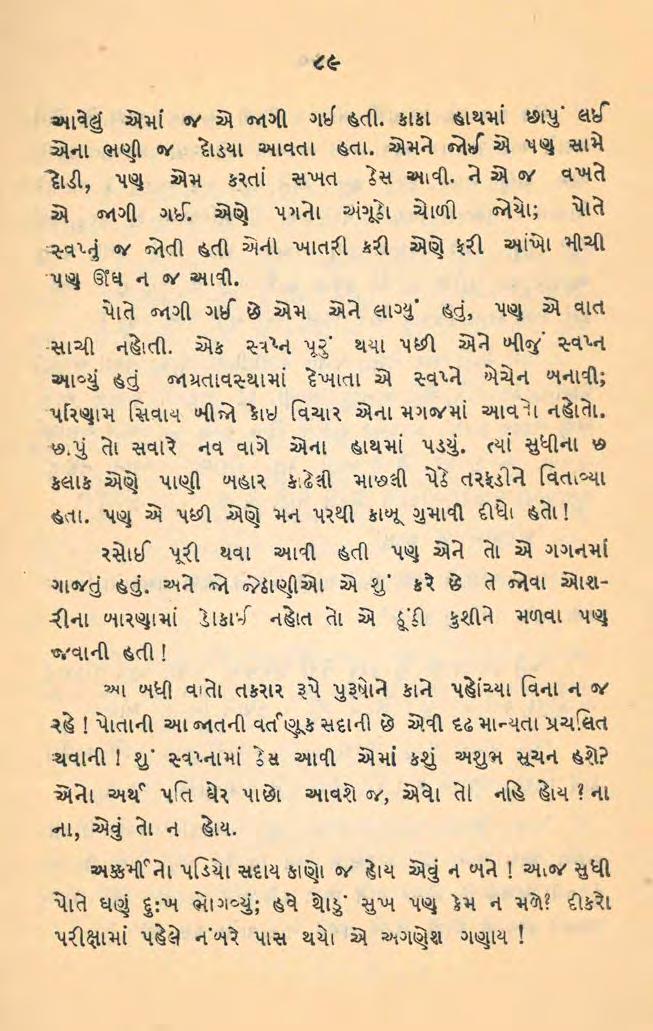 ૮૯
આવેલું એમાં જ એ જાગી ગઈ હતી. કાકા હાથમાં છાપું લઈ
એના ભણી જ દોડયા આવતા હતા. એમને જોઈ એ પણ સામે
દોડી, પણ એમ કરતાં સખત ઠેસ આવી. ને એ જ વખતે
એ જાગી ગઈ. એણે પગનો અંગૂઠો ચોળી જોયો; પોતે
સ્વપ્નું જ જોતી હતી એની ખાતરી કરી એણે ફરી આંખો મીચી
પણ ઊંઘ ન જ આવી.
પોતે જાગી ગઈ છે એમ એને લાગ્યું હતું, પણ એ વાત
સાચી નહોતી. એક સ્વપ્ન પૂરું થયા પછી એને બીજું સ્વપ્ન
આવ્યું હતું જાગ્રતાવસ્થામાં દેખાતા એ સ્વપ્ને બેચેન બનાવી;
પરિણામ સિવાય બીજો કોઇ વિચાર એના મગજમાં આવતો નહોતો.
છાપું તો સવારે નવ વાગે એના હાથમાં પડયું. ત્યાં સુધીના છ
કલાક એણે પાણી બહાર કાઢેલી માછલી પેઠે તરફડીને વિતાવ્યા
હતા. પણ એ પછી એણે મન પરથી કાબૂ ગુમાવી દીધો હતો!
રસોઈ પૂરી થવા આવી હતી પણ એને તો એ ગગનમાં
ગાજતું હતું. અને જો જેઠાણીઓ એ શું કરે છે તે જોવા ઓશ-
રીના બારણામાં ડોકાઈ નહોત તો એ ઠૂંઠી કુશીને મળવા પણ
જવાની હતી!
આ બધી વાતો તકરાર રૂપે પુરૂષોને કાને પહોંચ્યા વિના ન જ
રહે! પોતાની આ જાતની વર્તણૂક સદાની છે એવી દૃઢ માન્યતા પ્રચલિત
થવાની! શું સ્વપ્નામાં ઠેસ આવી એમાં કશું અશુભ સૂચન હશે?
એનો અર્થ પતિ ઘેર પાછો આવશે જ, એવો તો નહિ હોય? ના
ના, એવું તો ન હોય.
અક્કર્મીનો પડિયો સદાય કાણો જ હોય એવું ન બને! આજ સુધી
પોતે ઘણું દુઃખ ભોગવ્યું; હવે થોડું સુખ પણ કેમ ન મળે? દીકરો
પરીક્ષામાં પહેલે નંબરે પાસ થયો એ અગણેશ ગણાય!